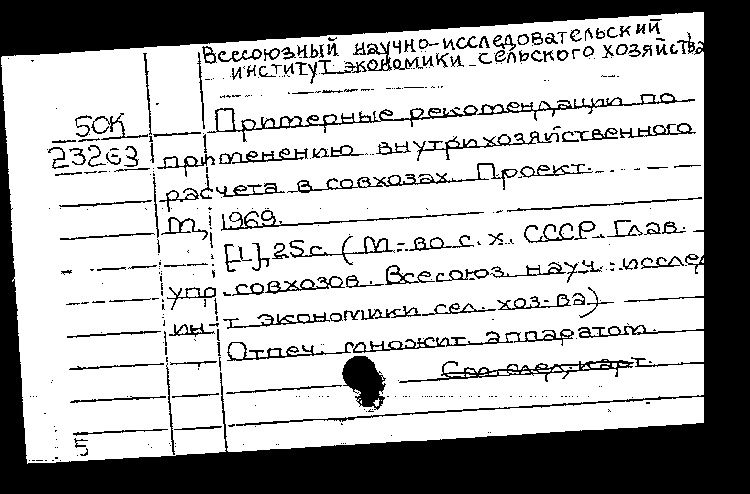 Всесоюзный научно-исследовательский
институт экономики сельского хозяйства
50К
Примерные рекомендации по
23263
применению внутрихозяйственного
расчета в совхозах. Проект.
М., 1969.
[1], 25 с. (М-во с.х. СССР. Глав.
упр. совхозов. Всесоюз. науч.-исслед
ин-т экономики сел. хоз-ва)
Отпеч. множит. аппаратом.
См. след. карт.
5